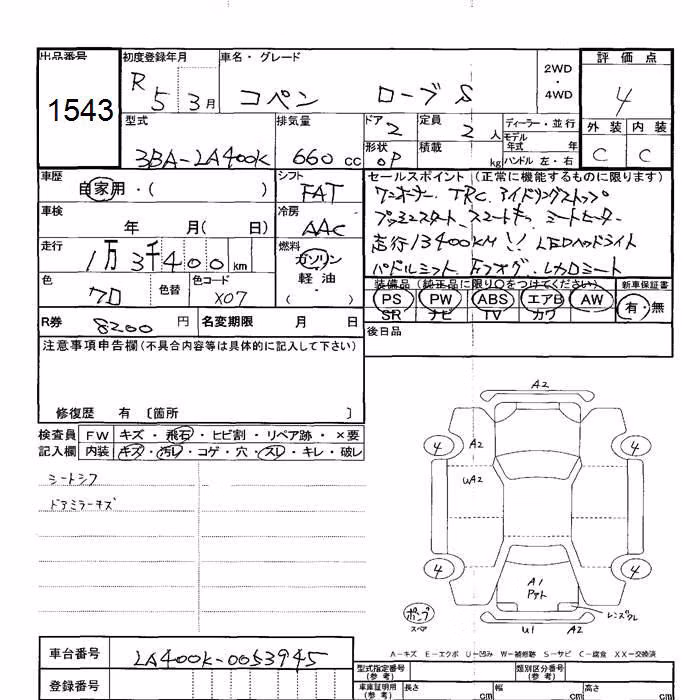 出品番号 初度登録年月 車名・グレード 2WD・4WD 評価点
1543 R 5 3月 コペン ローブ S 4
型式 排気量 ドア 2 定員 2人 ディーラー・並行 外装 内装
3BA-LA400K 660cc 形状 OP 積載 kg モデル年式 年 ハンドル 左・右 C C
車歴 自家用・( ) シフト FAT セールスポイント (正常に機能するものに限ります)
ワンオーナー TRC アイドリングストップ
車検 年 月( 日) 冷房 AAC プッシュスタート スマートキー シートヒーター
走行 1万3千400km 燃料 ガソリン・軽油・( ) 走行13400KM!! LEDヘッドライト
色 クロ 色替 色コード X07 パドルシフト Fフォグ レカロシート
装備品 (純正品に限り○をつけてください) 新車保証書
PS PW ABS エアB AW 有・無
SR ナビ TV カワ
R券 8200円 名変期限 月 日 後日品
注意事項申告欄(不具合内容等は具体的に記入して下さい)
修復歴 有 〔箇所 〕
検査員 FW キズ・飛石・ヒビ割・リペア跡・×要
記入欄 内装 キズ・汚レ・コゲ・穴・スレ・キレ・破レ
シートシワ
ドアミラーキズ
A2
4 A2 4
UA2
4 A1 4
ポンプ スペア U1 A2 レンズワレ
A-キズ E-エクボ U-凹み W-補修跡 S-サビ C-腐食 XX-交換済
車台番号 LA400K-0053945
登録番号
型式指定番号(参考) 類別区分番号(参考)
車庫証明用(参考) 長さ cm 幅 cm 高さ cm